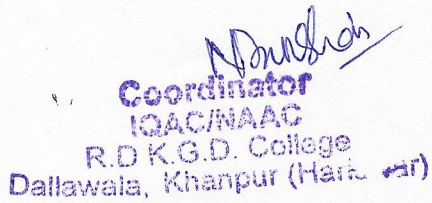 Coordinator
IQAC/NAAC
R.D K.G.D. College
Dallawala, Khanpur